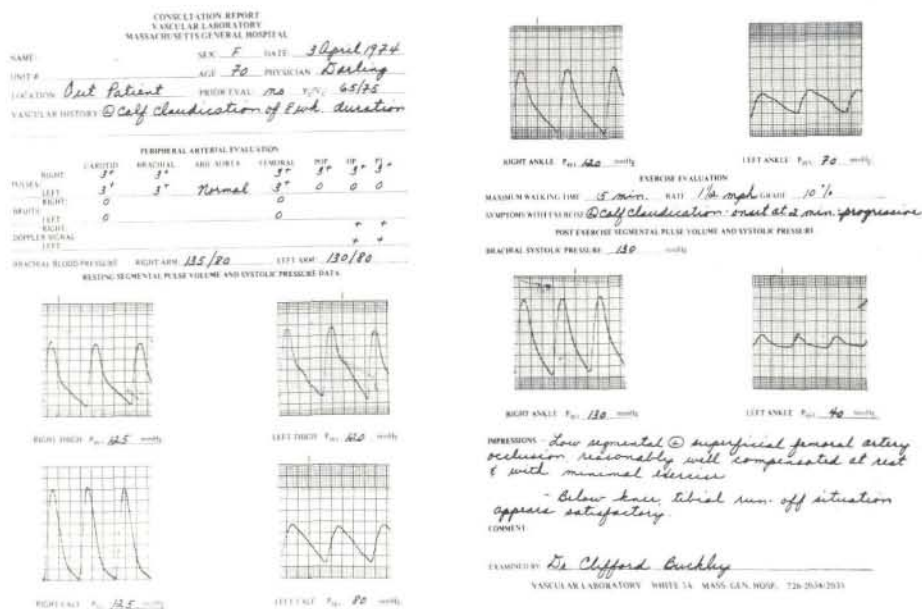 CONSULTATION REPORT
VASCULAR LABORATORY
MASSACHUSETTS GENERAL HOSPITAL
NAME: SEX: F DATE: 3 April 1974
UNIT # AGE 70 PHYSICIAN Darling
LOCATION: Out Patient PRIOR EVAL: no 65/75
VASCULAR HISTORY Ⓛ Calf Claudication of 8 wk. duration
PERIPHERAL ARTERIAL EVALUATION
CAROTID BRACHIAL ABD AORTA FEMORAL POP DP PT
RIGHT: 3+ 3+ 3+ 3+ 3+ 3+
PULSES
LEFT 3+ 3+ Normal 3+ 0 0 0
RIGHT: 0 0
BRUITS
LEFT 0 0
RIGHT: + +
DOPPLER SIGNAL
LEFT + +
BRACHIAL BLOOD PRESSURE RIGHT ARM: 135/80 LEFT ARM: 130/80
RESTING SEGMENTAL PULSE VOLUME AND SYSTOLIC PRESSURE DATA
RIGHT THIGH 125 mmHg
LEFT THIGH 120 mmHg
RIGHT CALF 125 mmHg
LEFT CALF 80 mmHg
RIGHT ANKLE 120 mmHg
LEFT ANKLE 70 mmHg
EXERCISE EVALUATION
MAXIMUM WALKING TIME 5 min. RATE 1½ mph GRADE 10%
SYMPTOMS WITH EXERCISE Ⓛ Calf Claudication - onset at 2 min - progressive
POST EXERCISE SEGMENTAL PULSE VOLUME AND SYSTOLIC PRESSURE
BRACHIAL SYSTOLIC PRESSURE: 130
RIGHT ANKLE 130 mmHg
LEFT ANKLE 40 mmHg
IMPRESSIONS - Low segmental Ⓛ superficial femoral artery
occlusion reasonably well compensated at rest
& with minimal exercise
- Below knee, tibial run-off situation
appears satisfactory.
COMMENT:
EXAMINED BY Dr Clifford Buckley
VASCULAR LABORATORY WHITE MASS. GEN. HOSP. 726-2034/2035